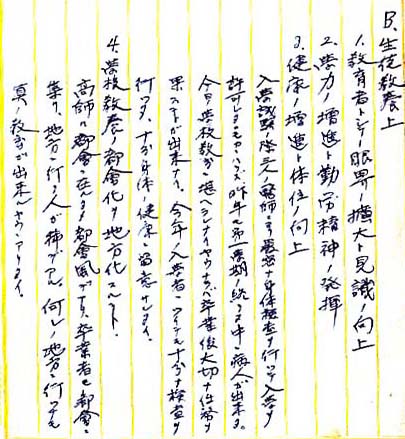 B. 生徒教養上
1. 教育者トシテノ眼界ノ擴大ト見識ノ向上
2. 学力ノ増進ト勤労精神ノ発揮
3. 健康ノ増進ト体位ノ向上
入学試験ノ際三人ノ醫師ヨリ厳密ナ身体検査ヲ行ッテ入学ヲ
許可シテモ 昨年ノ第一学期ノ終ニ中病人ガ出来ル。
今日学校教 堪ヘラレナイヤウナ 卒業後大切ナ任務ヲ
果ス コトガ出来ナイ。今年ノ入学者ニツイテモ十分ナ検査ヲ
行ッテ、十分身体ノ健康ニ留意サレタイ。
4. 学校教養ノ都會化ヲ地方化スルコト。
高師ハ都會ニ在ルヲ都會風ガアリ、卒業者モ都會ニ
集リ、地方ニ行ク人ガ稀デアル。何レノ地方ニ行ッテモ
真ノ教育ガ出来ルヤウニアリタイ。